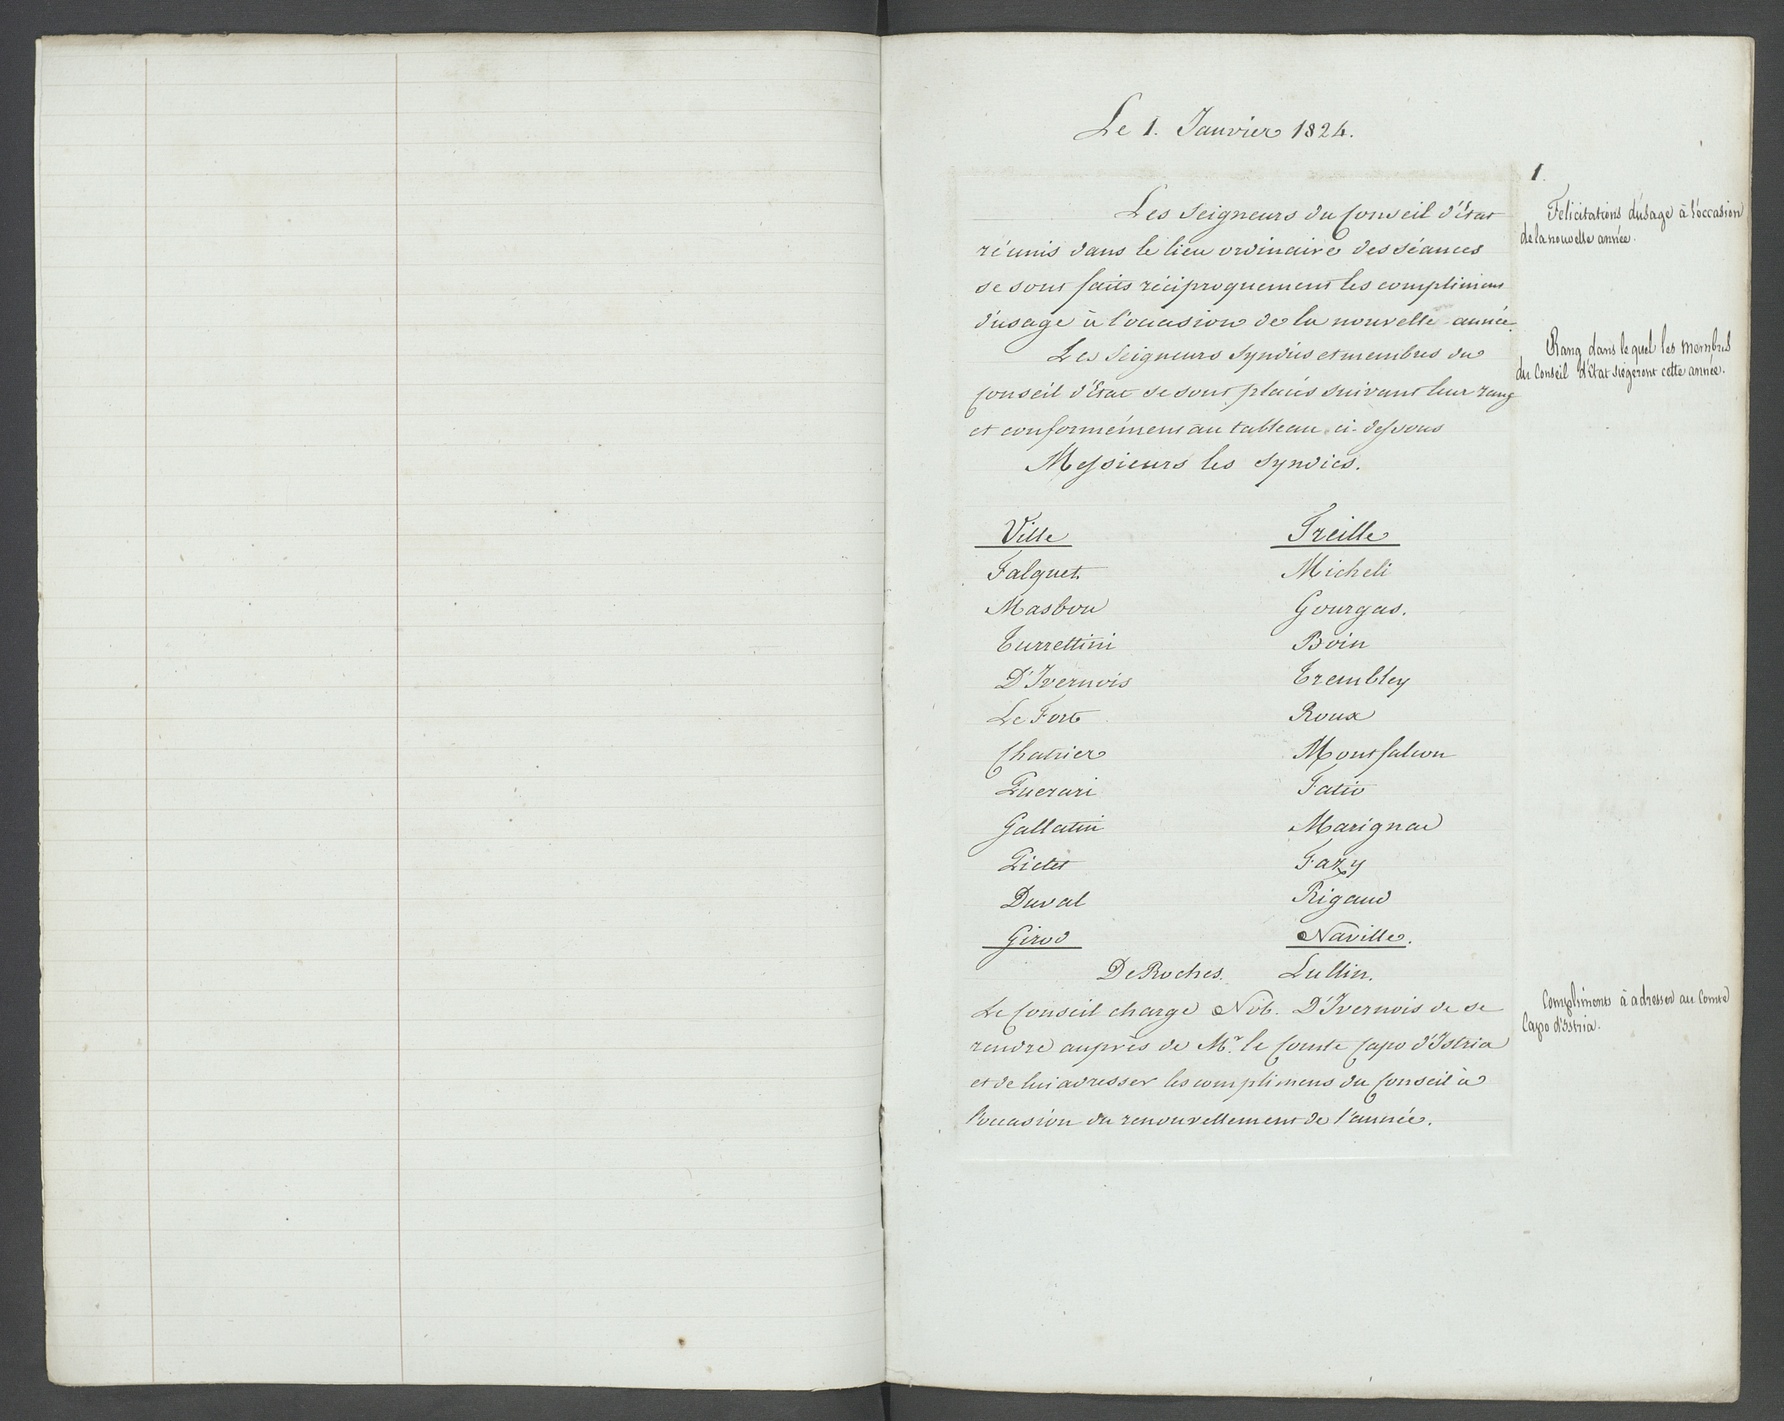 Le 1. Janvier 1824.
1.
Les Seigneurs du Conseil d'État
réunis dans le lieu ordinaire des séances
se sont faits réciproquement les complimens
d'usage à l'occasion de la nouvelle année.
Félicitations d'usage à l'occasion
de la nouvelle année.
Les Seigneurs Syndics et membres du
Conseil d'État se sont placés suivant leur rang
et conformément au tableau ci-dessous
Rang dans lequel les membres
du Conseil d'État siégeront cette année.
Messieurs les Syndics.
Ville Treille
Falquet Micheli
Masbou Gourgas.
Turrettini Boin
D'Ivernois Trembley
Le Fort Roux
Chatrier Montfalcon
Fatio
Gallatin Marignac
Pictet Fazy
Duval Rigaud
Girod Naville.
DeRoches. Lullin.
Le Conseil charge Nob. D'Ivernois de se
rendre auprès de Mr. le Comte Capo d'Istria
et de lui adresser les complimens du Conseil à
l'occasion du renouvellement de l'année.
Compliments à adresser au Comte
Capo d'Istria.